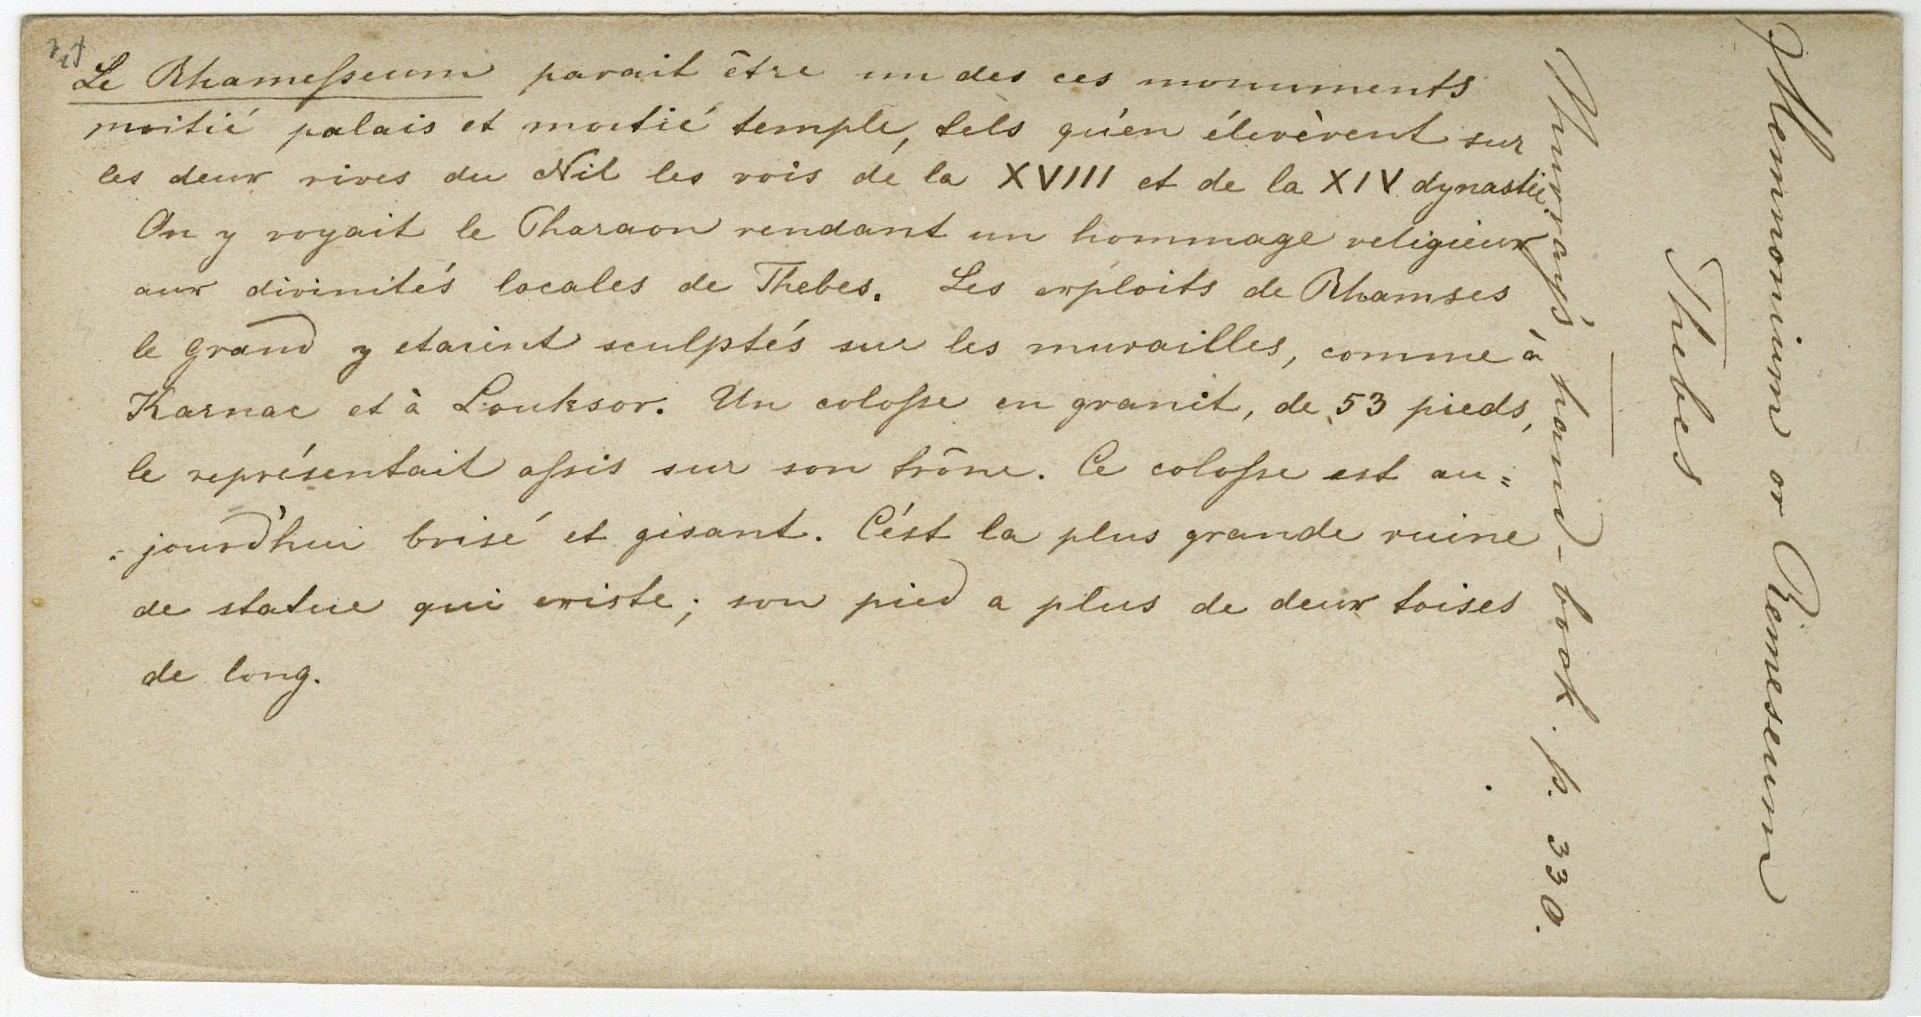 Le Rhamesseum parait être un des ces monuments
moitié palais et moitié temple, tels qu'en élevèrent sur
les deux rives du Nil les rois de la XVIII et de la XIV dynastie.
On y voyait le Pharaon rendant un hommage religieux
aux divinités locales de Thebes. Les exploits de Rhamses
le grand y etaient sculptés sur les murailles, comme à
Karnac et à Louksor. Un colosse en granit, de 53 pieds,
le représentait assis sur son trône. Ce colosse est au=
jourd'hui brisé et gisant. C'ést la plus grande ruine
de statue qui existe; son pied a plus de deux toises
de long.
Memnonium or Remeseum
Thebes
Murray's hand-book. p. 330.